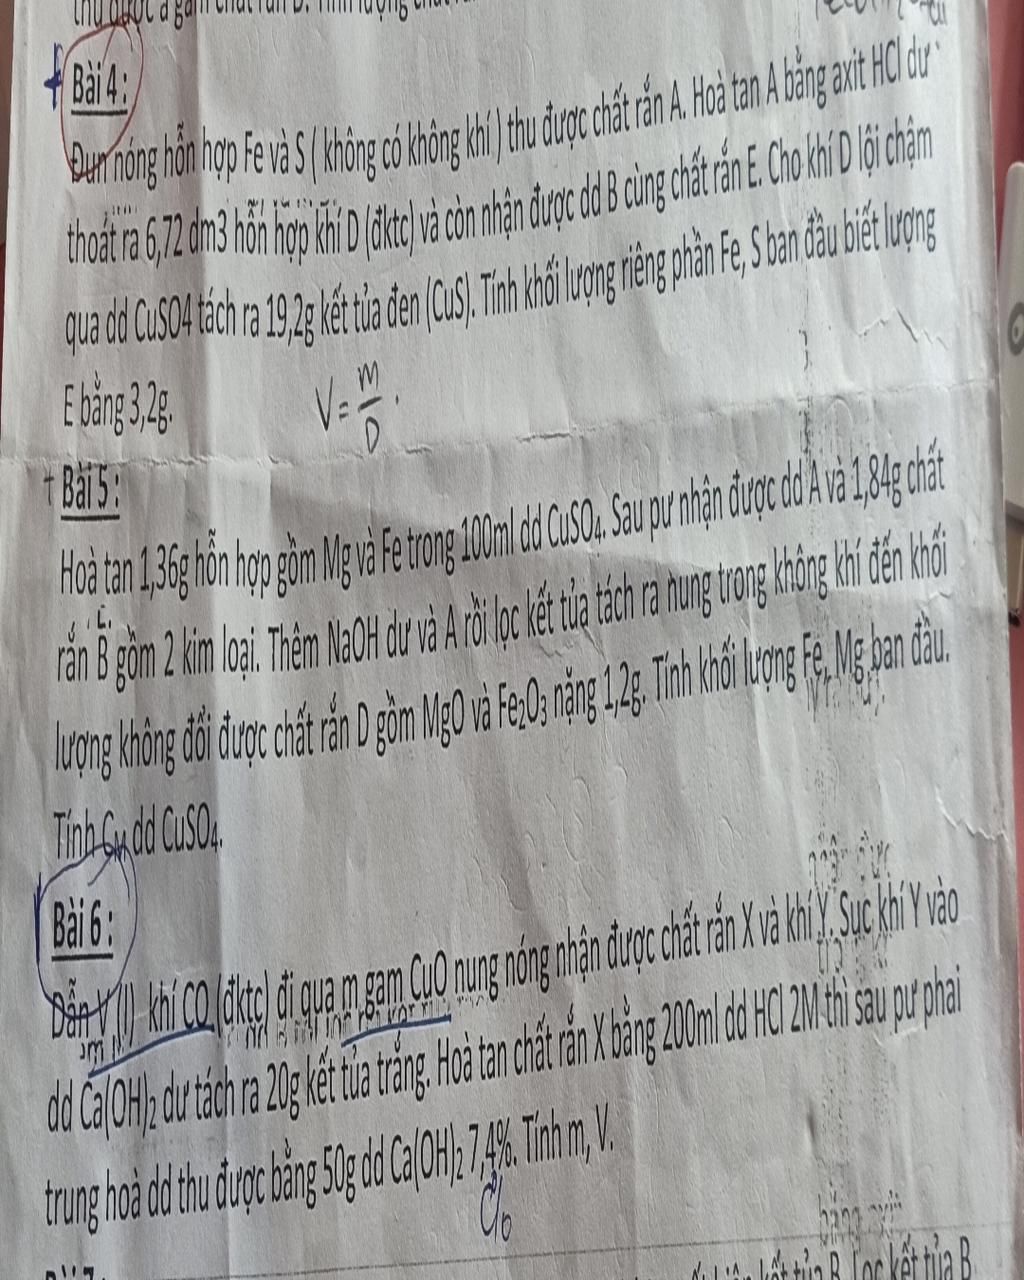 Bài 4 :
Đun nóng hỗn hợp Fe và S ( không có không khí ) thu được chất rắn A. Hoà tan A bằng axit HCl dư
thoát ra 6,72 dm3 hỗn hợp khí D (đktc) và còn nhận được dd B cùng chất rắn E. Cho khí D lội chậm
qua dd CuSO4 tách ra 19,2g kết tủa đen (CuS). Tính khối lượng riêng phần Fe, S ban đầu biết lượng
E bằng 3,2g.
V = m/D .
Bài 5 :
Hoà tan 1,36g hỗn hợp gồm Mg và Fe trong 100ml dd CuSO₄. Sau pư nhận được dd A và 1,84g chất
rắn B gồm 2 kim loại. Thêm NaOH dư và A rồi lọc kết tủa tách ra nung trong không khí đến khối
lượng không đổi được chất rắn D gồm MgO và Fe₂O₃ nặng 1,2g. Tính khối lượng Fe, Mg ban đầu.
Tính C_M dd CuSO₄.
Bài 6 :
Dẫn V (l) khí CO (đktc) đi qua m gam CuO nung nóng nhận được chất rắn X và khí Y. Sục khí Y vào
dd Ca(OH)₂ dư tách ra 20g kết tủa trắng. Hoà tan chất rắn X bằng 200ml dd HCl 2M thì sau pư phai
trung hoà dd thu được bằng 50g dd Ca(OH)₂ 7,4%. Tính m, V.
kết tủa B. Lọc kết tủa B